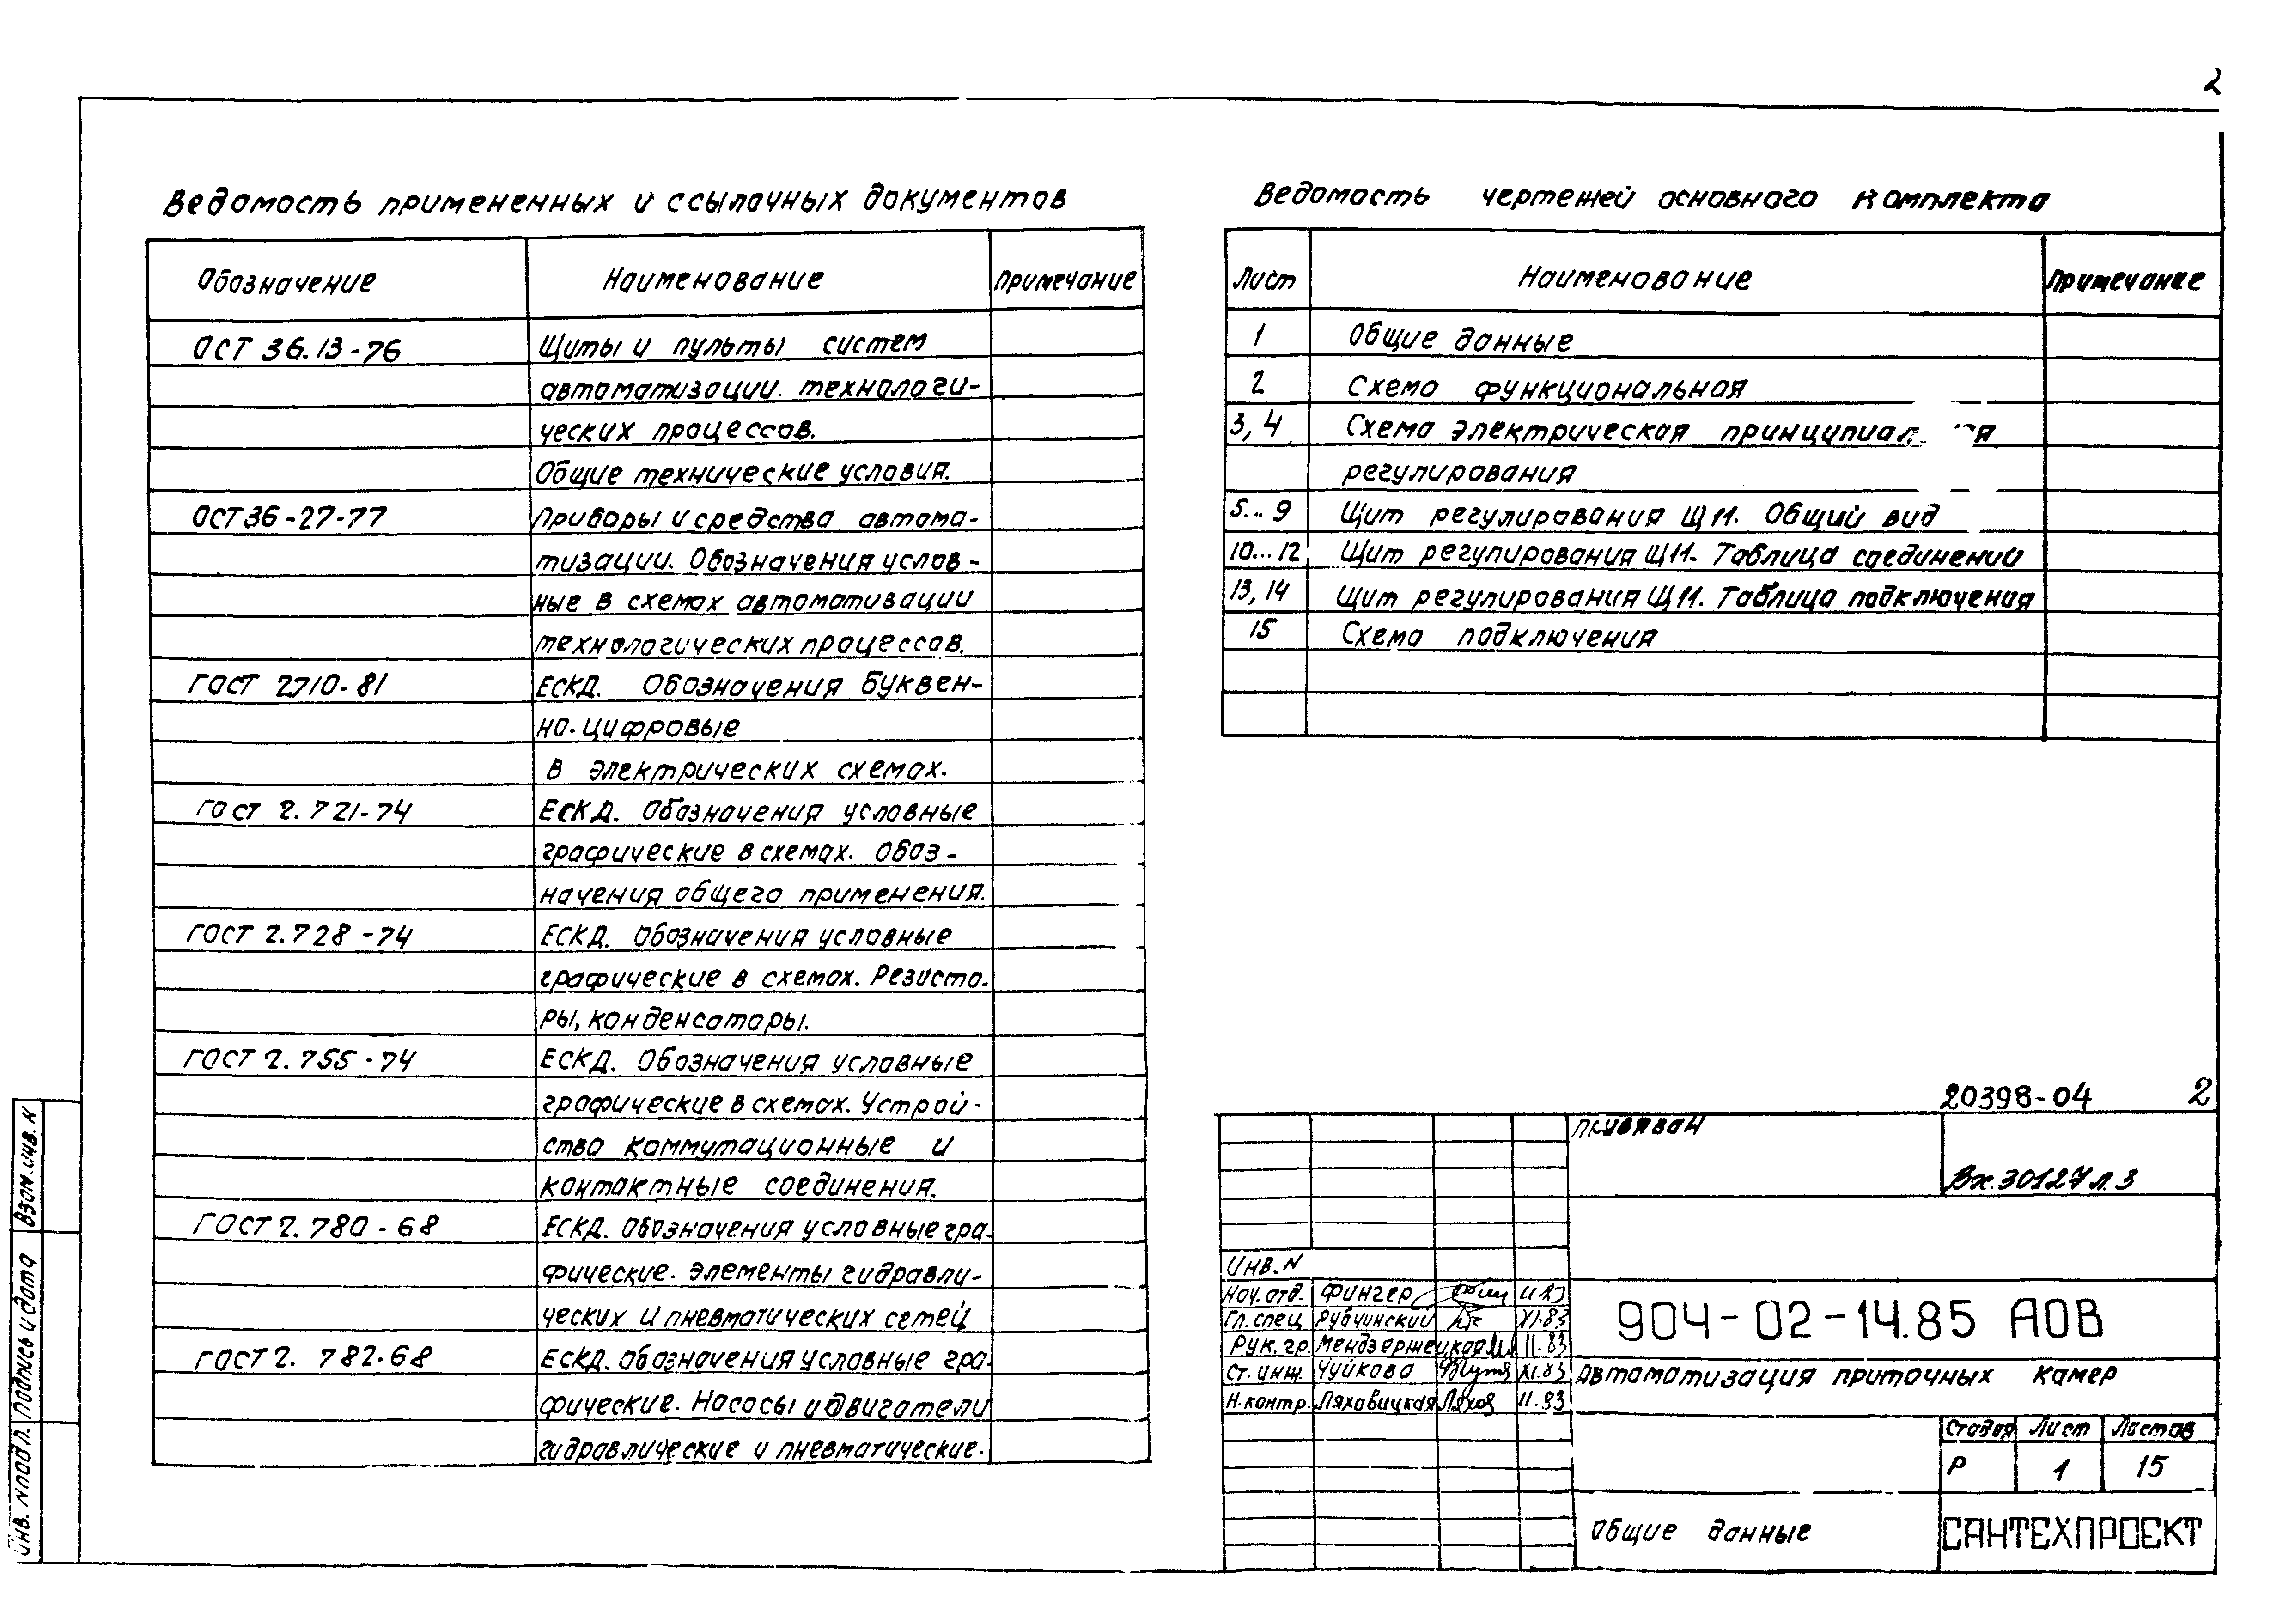 2
Ведомость примененных и ссылочных документов
Обозначение Наименование Примечание
ОСТ 36.13-76 Щиты и пульты систем
автоматизации. технологи-
ческих процессов.
Общие технические условия.
ОСТ 36-27-77 Приборы и средства автома-
тизации. Обозначения услов-
ные в схемах автоматизации
технологических процессов.
ГОСТ 2710-81 ЕСКД. Обозначения буквен-
но-цифровые
в электрических схемах.
ГОСТ 2.721-74 ЕСКД. Обозначения условные
графические в схемах. Обоз-
начения общего применения.
ГОСТ 2.728-74 ЕСКД. Обозначения условные
графические в схемах. Резисто-
ры, конденсаторы.
ГОСТ 2.755-74 ЕСКД. Обозначения условные
графические в схемах. Устрой-
ства коммутационные и
контактные соединения.
ГОСТ 2.780-68 ЕСКД. Обозначения условные гра-
фические. Элементы гидравли-
ческих и пневматических сетей
ГОСТ 2. 782-68 ЕСКД. Обозначения условные гра-
фические. Насосы и двигатели
гидравлические и пневматические.
Ведомость чертежей основного комплекта
Лист Наименование Примечание
1 Общие данные
2 Схема функциональная
3, 4 Схема электрическая
регулирования
5...9 Щит регулирования Щ11. Общий вид
10...12 Щит регулирования Щ11. Таблица соединений
13, 14 Щит регулирования Щ11. Таблица подключения
15 Схема подключения
20398-04 2
Привязан
Вх.30127 л.3
Инв. N
Нач. отд. Фингер
Гл. спец Рубчинский XI.83
Рук. гр. Мендзержецкая 11.83
Ст. инж. Чуйкова XI.83
Н. контр. Ляховицкая 11.83
904-02-14.85 АОВ
Автоматизация приточных камер
Стадия Лист Листов
Р 1 15
Общие данные
САНТЕХПРОЕКТ
Взам. инв. N
Подпись и дата
Инв. N подл.